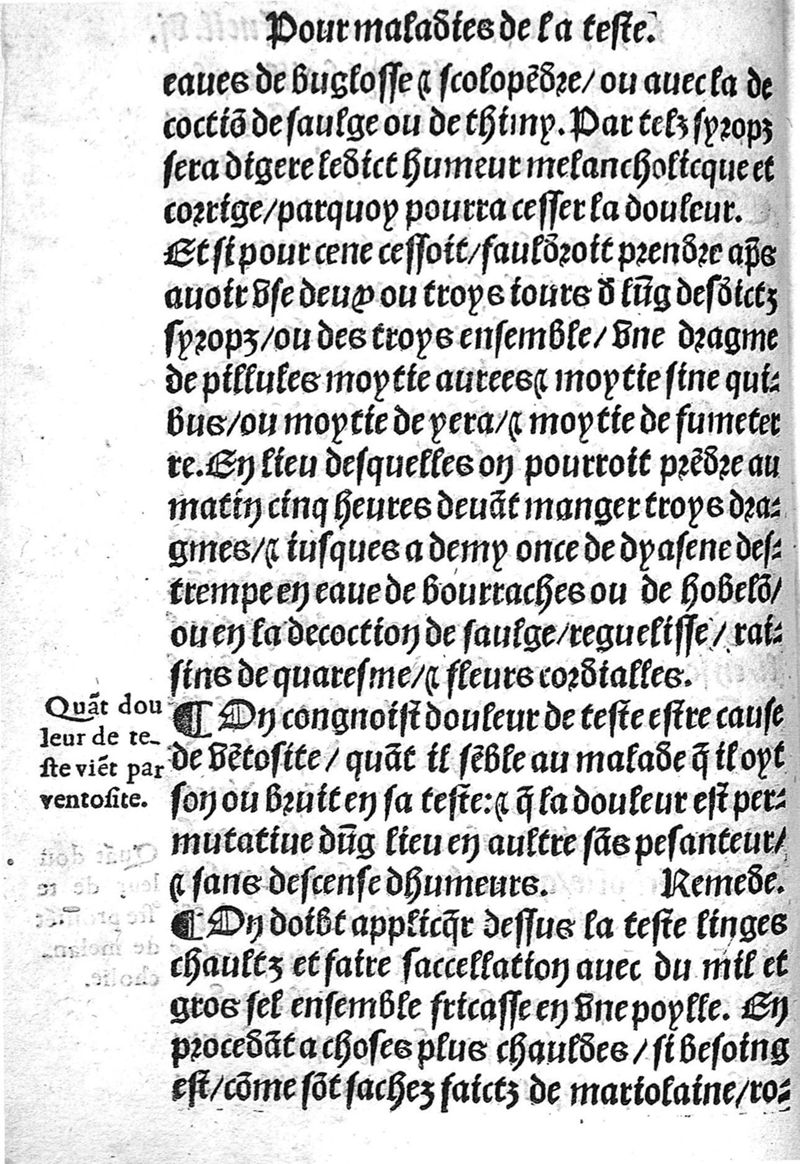 Pour maladies de la teste.
eaues de buglosse ⁊ scolopēdre/ ou auec la de
coctiō de saulge ou de thimy. Par telz syropz
sera digere ledict humeur melancholicque et
corrige/parquoy pourra cesser la douleur.
Et si pour ce ne cessoit/fauldroit prendre ap̄s
auoir vse deux ou troys iours d̄ lūg desdictz
syropz/ou des troys ensemble/ vne dragme
de pillules moytie aurees⁊ moytie sine qui⸗
bus/ou moytie de yera/⁊ moytie de fumeter
re. En lieu desquelles on pourroit prēdre au
matin cinq heures deuāt manger troys dra⸗
gmes/⁊ iusques a demy once de dyasene des⸗
trempe en eaue de bourraches ou de hobelō/
ou en la decoction de saulge/reguelisse/ rai⸗
sins de quaresme/⁊ fleurs cordialles.
Quāt dou
leur de te-
ste viēt par
ventosite.
¶ On congnoist douleur de teste estre cause
de vētosite/ quāt il sēble au malade q̄ il oyt
son ou bruit en sa teste:⁊ q̄ la douleur est per⸗
mutatiue dūg lieu en aultre sās pesanteur/
⁊ sans descense dhumeurs. Remede.
¶ On doibt applicq̄r dessus la teste linges
chaultz et faire saccellation auec du mil et
gros sel ensemble fricasse en vne poylle. En
procedāt a choses plus chauldes/ si besoing
est/cōme sōt sachez faictz de mariolaine/ro⸗